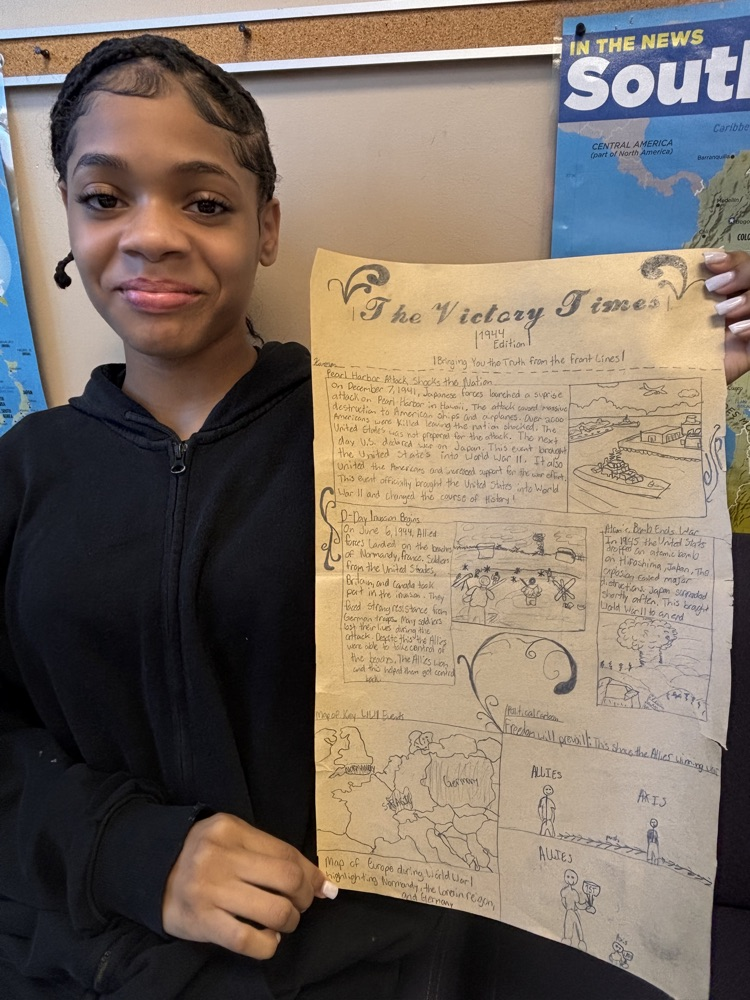 IN THE NEWS
South
CENTRAL AMERICA
(part of North America)
Caribbe
Barranquilla
Medellín
The Victory Times
1944
Edition
Bringing You the Truth from the Front Lines!
Pearl Harbor Attack Shocks the Nation
on December 7, 1941, Japanese forces launched a suprise
attack on Pearl Harbor in Hawaii. The attack caused massive
destruction to American ships and airplanes. Over 2000
Americans were killed leaving the nation shocked. The
United States was not prepared for the attack. The next
day U.S. declared war on Japan. This event brought
the United States into World War II. It also
united the Americans and increased support for the war effort.
This event officially brought the United States into World
War II and changed the course of history!
D-Day Invasion Begins
On June 6, 1944, Allied
forces landed on the beaches
of Normandy, France. Soldiers
from the United States,
Britain, and Canada took
part in the invasion. They
faced strong resistance from
German troops. Many soldiers
lost their lives during the
attack. Despite this the Allies
were able to take control of
the beaches. The Allies won,
and this helped them get control
back.
Atomic Bomb Ends War
In 1945 the United States
dropped an atomic bomb
on Hiroshima, Japan. The
explosion caused major
destruction. Japan surrended
shortly after. This brought
World War II to an end
Map of Key WWII Events
Normandy
Germany
Map of Europe during World War I
highlighting Normandy, the Lorrain reigon,
and Germany
Political Cartoon
Freedom will prevail! This shows the Allies winning war
ALLIES
AXIS
ALLIES
Axis